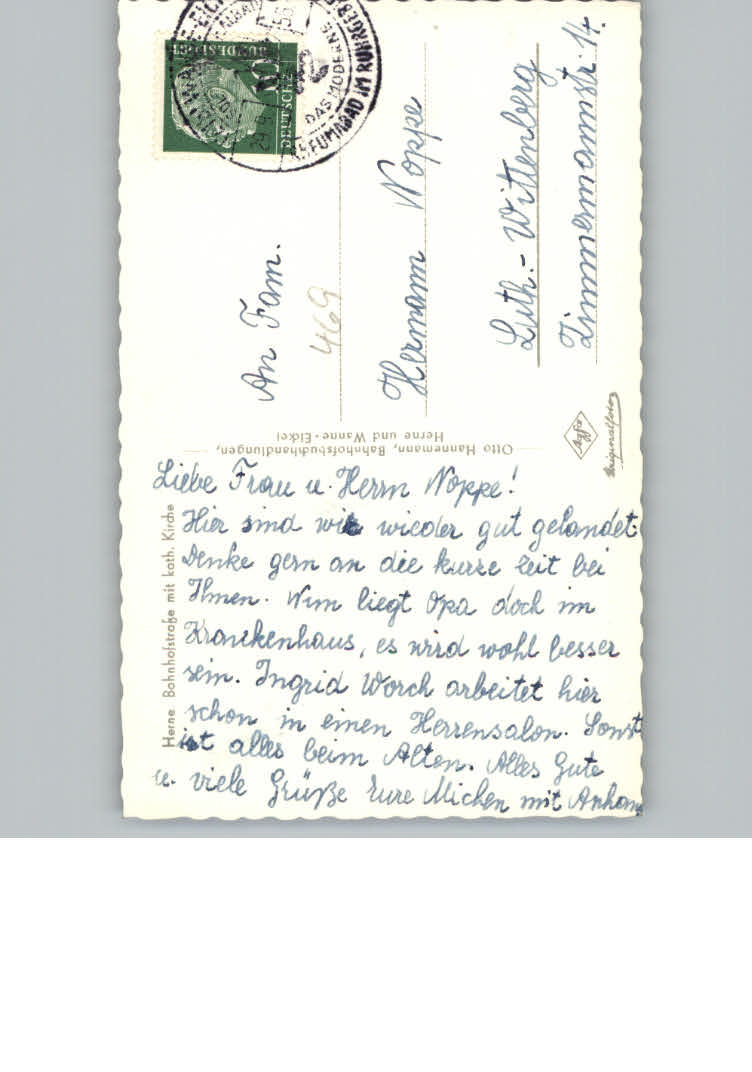 Liebe Frau u. Herrn Noppe!
Hier sind wir wieder gut gelandet.
Denke gern an die kurze Zeit bei
Ihnen. Nun liegt Opa doch im
Krankenhaus, es wird wohl besser
sein. Ingrid Worch arbeitet hier
schon in einen Herrensalon. Sonst
ist alles beim Alten. Alles Gute
u. viele Grüße Eure Michen mit Anhang
An Fam.
469
Hermann Noppe
Luth.-Wittenberg
Zimmermannstr. 14.
Herne Bahnhofstraße mit kath. Kirche
Otto Hannemann, Bahnhofsbuchhandlungen,
Herne und Wanne-Eickel
Agfa
Originalfoto
DEUTSCHE
BUNDESPOST
10
DAS MODERNE
RHEUMABAD IM RUHRGEBIET